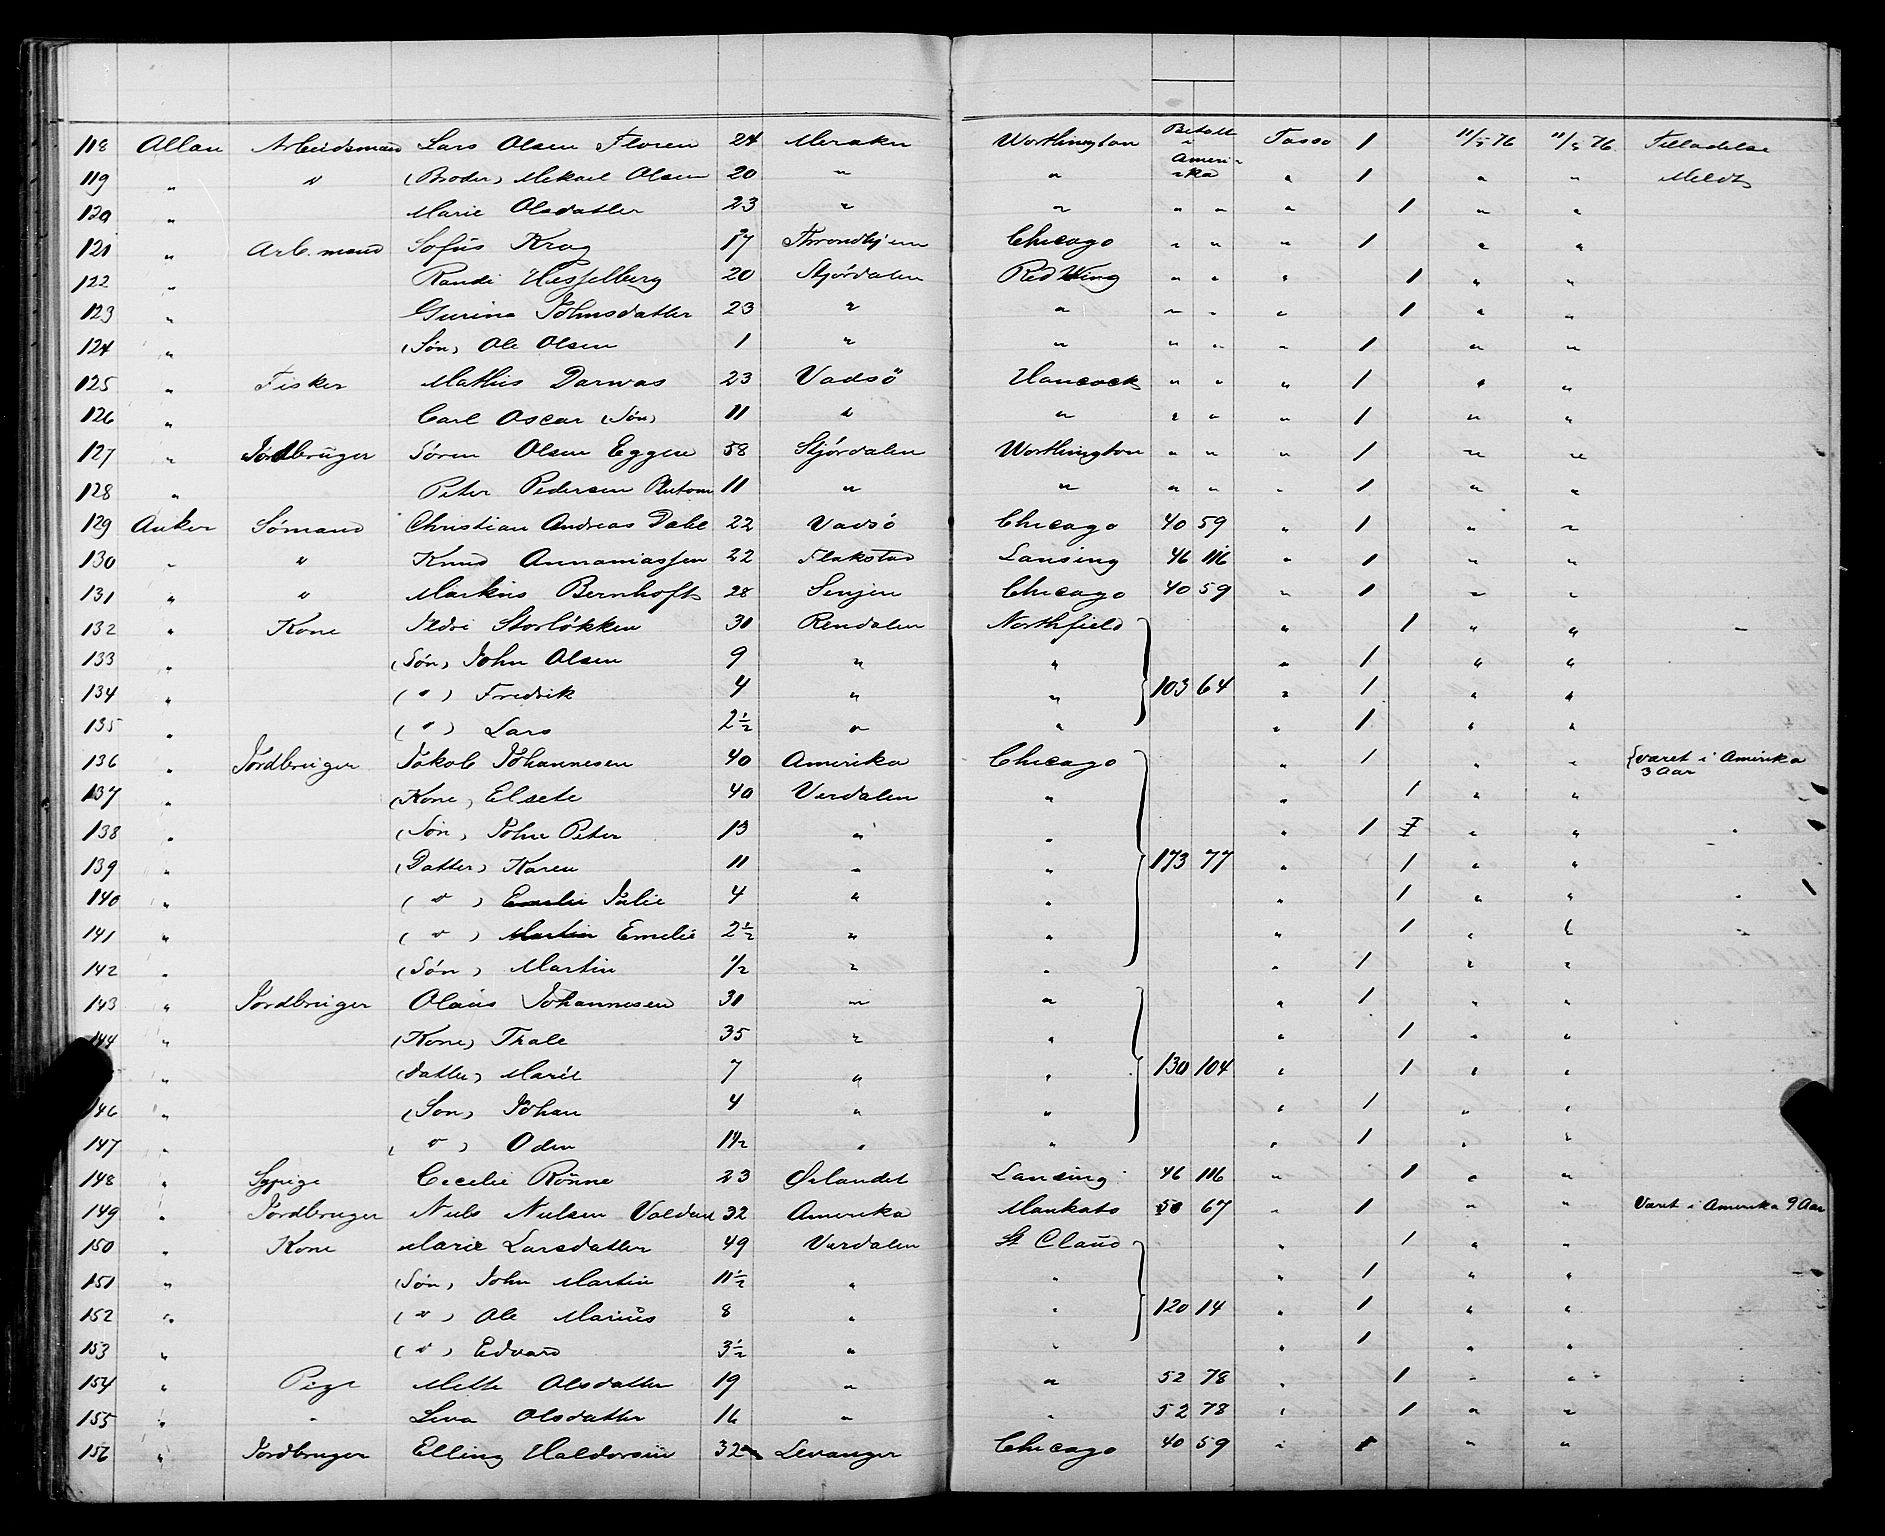 118 Allan Arbeidsmand Lars Olsen Floren 24 Meraker Worthington Betalt i Ameri- Tasso 1 11/5 76 11/5 76 Tilladelse
119 " " (Broder) Mekael Olsen 20 " " ka " 1 " " Meldt
120 " Marie Olsdatter 23 " " " " " 1 " "
121 " Arb.mand Sofus Krag 17 Throndhjem Chicago " " " 1 " "
122 " Randi Hesselberg 20 Stjørdalen Red Wing " " " 1 " "
123 " Gurina Johnsdatter 23 " " " " " 1 " "
124 " (Søn) Ole Olsen 1 " " " " " 1 " "
125 " Fisker Mathis Darwas 23 Vadsö Hancock " " " 1 " "
126 " Carl Oscar (Søn) 11 " " " " " 1 " "
127 " Jordbruger Søren Olsen Eggen 58 Stjørdalen Worthington " " " 1 " "
128 " Peter Pedersen 11 " " " " " 1 " "
129 Anker Sømand Christian Andreas Dahl 22 Vadsö Chicago 40 59 " 1 " "
130 " " Knud Annaniassen 22 Flakstad Lansing 46 116 " 1 " "
131 " " Markus Bernhoft 28 Senjen Chicago 40 59 " 1 " "
132 " Kone Storløkken 31 Rendalen Northfield " 1 " "
133 " (Søn) John Olsen 9 " " " 1 " "
134 " ( " ) Fredrik 4 " " 103 64 " 1 " "
135 " ( " ) Lars 2½ " " " 1 " "
136 " Jordbruger Jakob Johannesen 40 Amerika Chicago " 1 " " været i Amerika 3 Aar
137 " (Kone) Elsete 40 Verdalen " " 1 " "
138 " (Søn) John Peter 13 " " " 1 1 " "
139 " (Datter) Karen 11 " " 173 77 " 1 " "
140 " ( " ) Emelie Julie 4 " " " 1 " "
141 " ( " ) Martin Emelie 2½ " " " 1 " "
142 " (Søn) Martin ½ " " " 1 " "
143 " Jordbruger Olaus Johannesen 31 " " " 1 " "
144 " (Kone) Thale 35 " " " 1 " "
" (Datter) Marit 7 " " 130 104 " 1 " "
146 " (Søn) Johan 4 " " " 1 " "
147 " ( " ) Oden 1½ " " " 1 " "
148 " Sypige Cecelie Rönne 23 Ørlandet Lansing 46 116 " 1 " "
149 " Jordbruger Niels Nielsen 32 Amerika Mankato 50 67 " 1 " " Været i Amerika 9 Aar
150 " Kone Marie Larsdatter 49 Verdalen St Claud " 1 " "
151 " (Søn) John Martin 11½ " " " 1 " "
152 " ( " ) Ole Marius 8 " " 120 14 " 1 " "
153 " ( " ) Edvard 3½ " " " 1 " "
154 " Pige Mette Olsdatter 19 " " 52 78 " 1 " "
155 " " Lena Olsdatter 16 " " 52 78 " 1 " "
156 " Jordbruger Elling Haldorsen 32 Levanger Chicago 40 59 " 1 " "